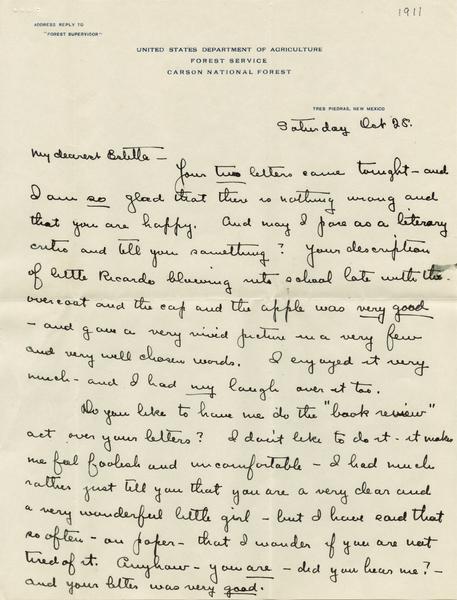 1911
ADDRESS REPLY TO
"FOREST SUPERVISOR"
UNITED STATES DEPARTMENT OF AGRICULTURE
FOREST SERVICE
CARSON NATIONAL FOREST
TRES PIEDRAS, NEW MEXICO
Saturday Oct 28.
My dearest Estella -
Your two letters came tonight - and
I am so glad that there is nothing wrong and
that you are happy. And may I pose as a literary
critic and tell you something? Your description
of little Ricardo blowing into school late with the
overcoat and the cap and the apple was very good
- and gave a very vivid picture in a very few
and very well chosen words. I enjoyed it very
much - and I had my laugh over it too.
Do you like to have me do the "book review"
act over your letters? I don't like to do it - it makes
me feel foolish and uncomfortable - I had much
rather just tell you that you are a very dear and
a very wonderful little girl - but I have said that
so often - on paper - that I wonder if you are not
tired of it. Anyhow - you are - did you hear me? -
and your letter was very good.